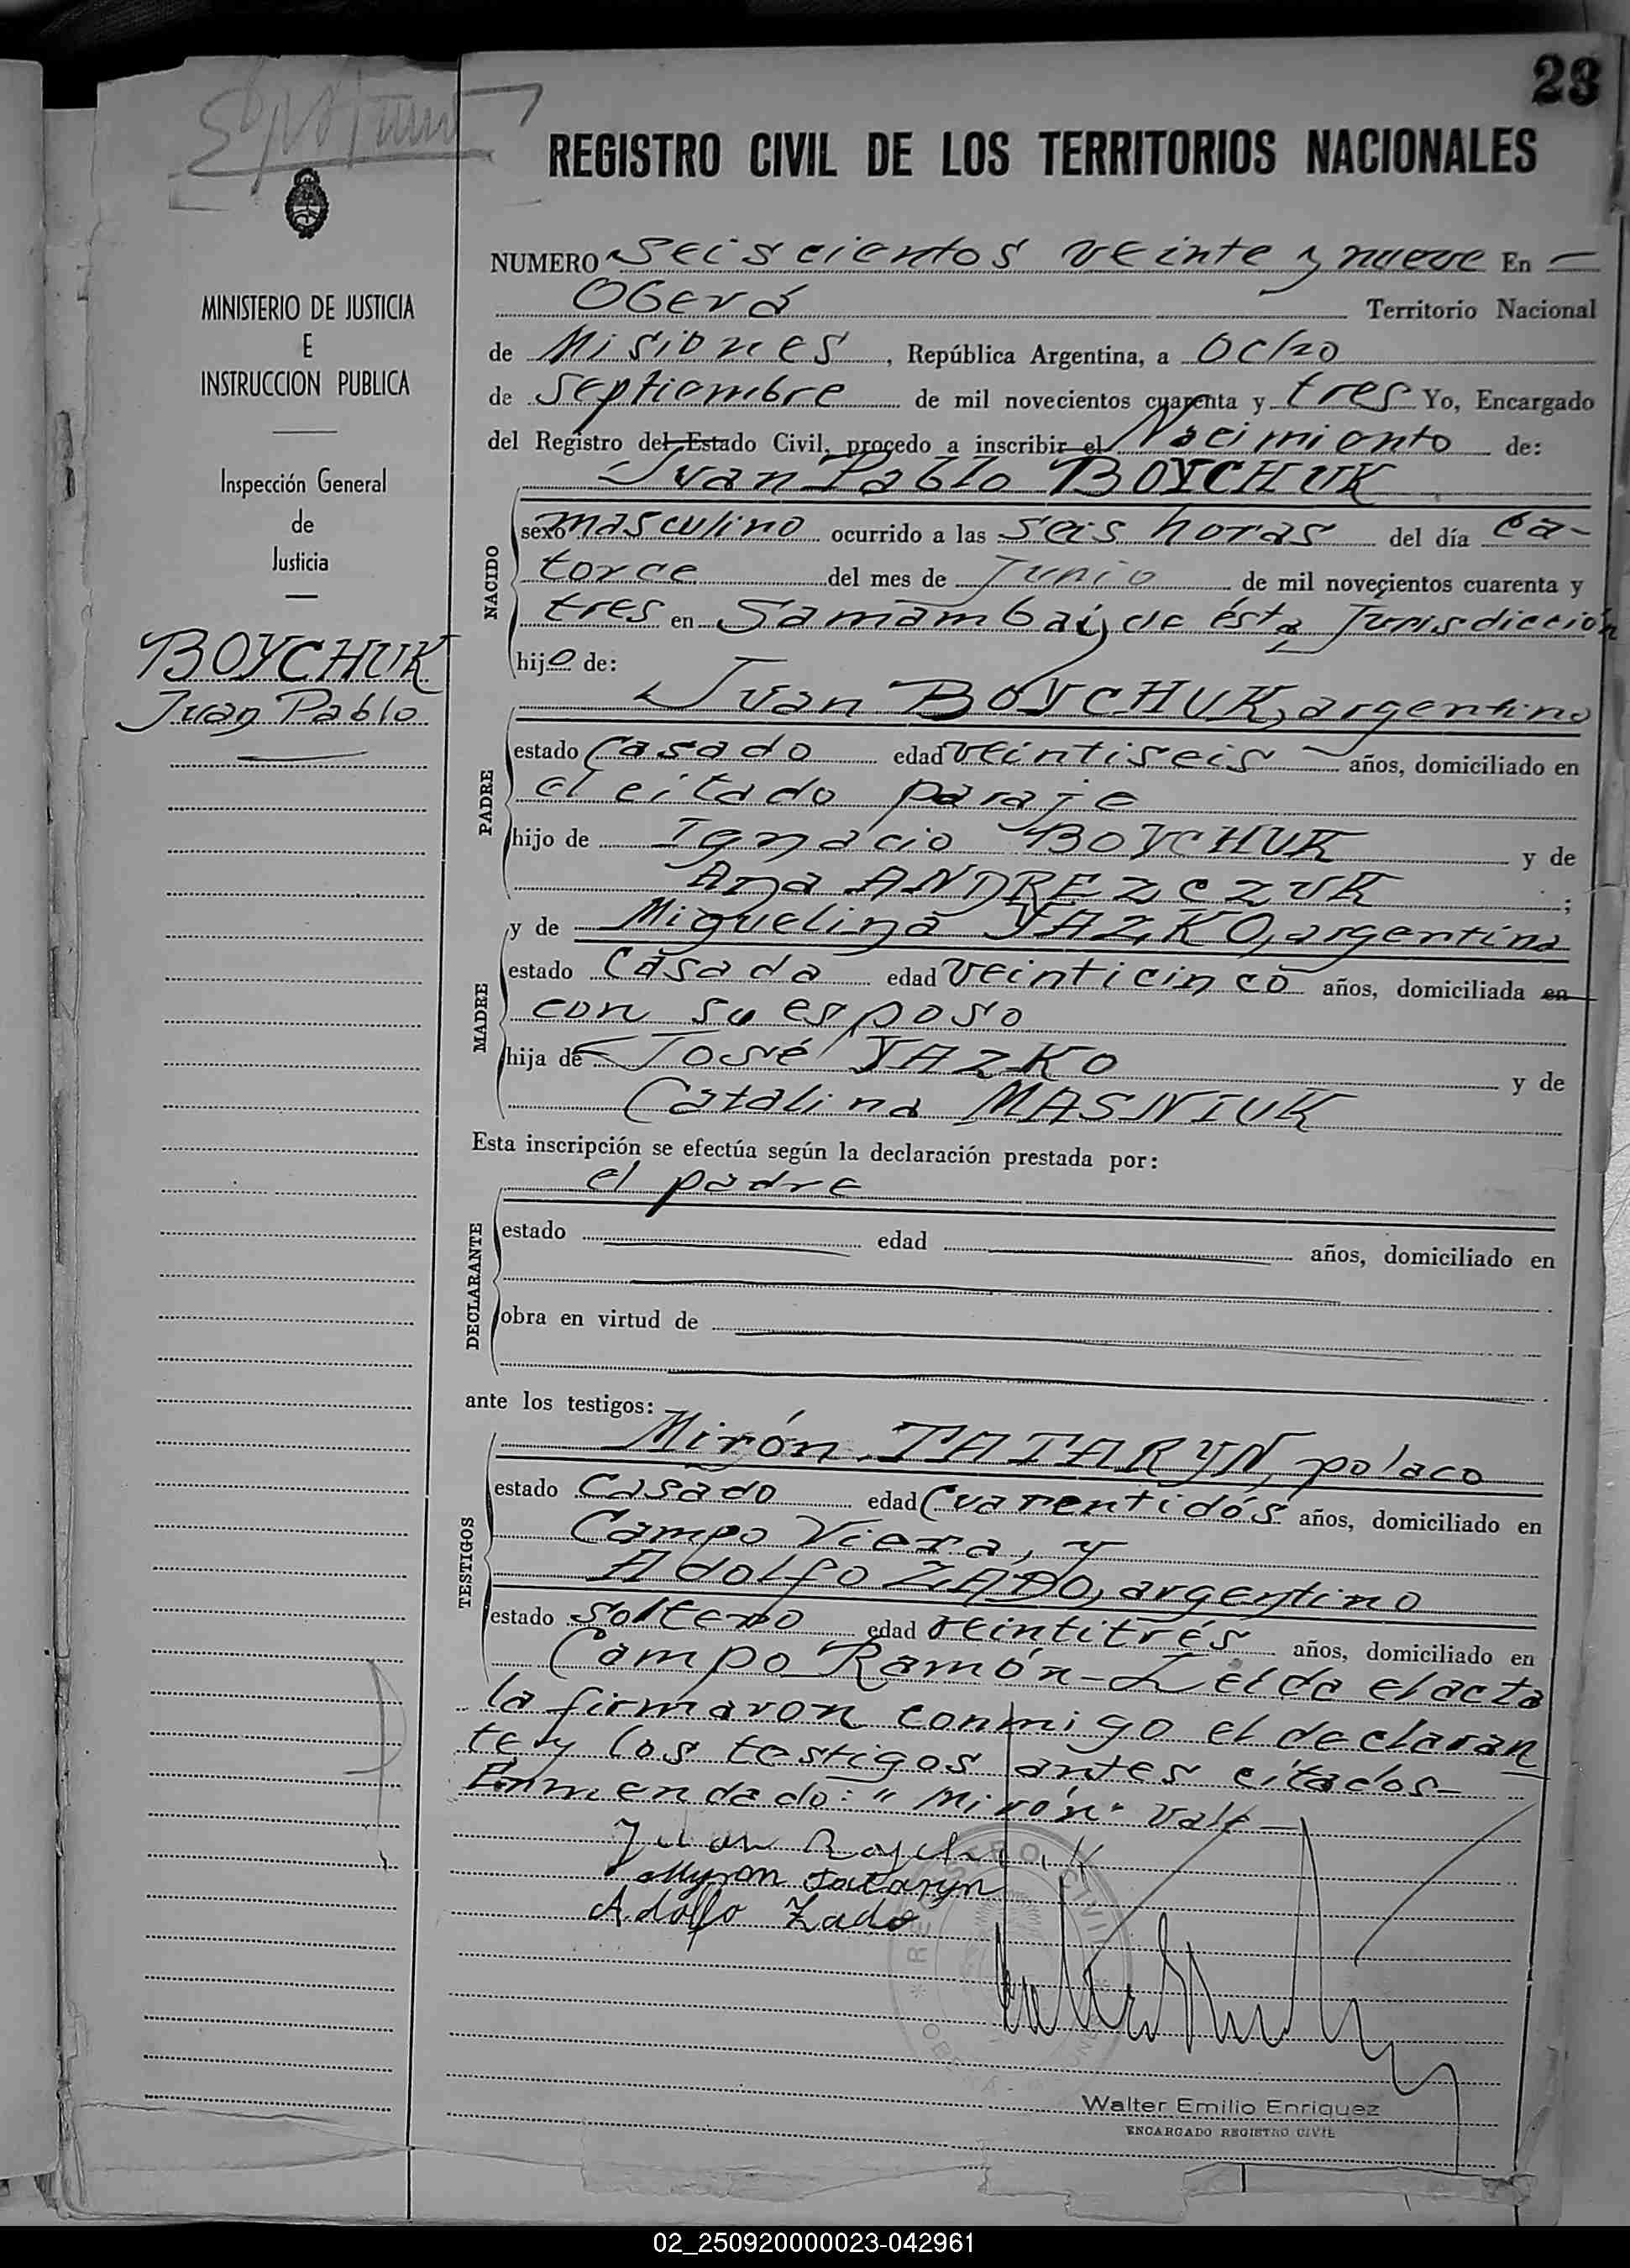 23
REGISTRO CIVIL DE LOS TERRITORIOS NACIONALES
MINISTERIO DE JUSTICIA
E
INSTRUCCION PUBLICA
Inspección General
de
Justicia
BOYCHUK
Juan Pablo
NUMERO Seiscientos veinte y nueve En —
Oberá Territorio Nacional
de Misiones, República Argentina, a Ocho
de Septiembre de mil novecientos cuarenta y tres Yo, Encargado
del Registro del Estado Civil, procedo a inscribir el Nacimiento de:
Juan Pablo BOYCHUK
NACIDO
sexo masculino ocurrido a las seis horas del día ca-
torce del mes de Junio de mil novecientos cuarenta y
tres en Samambai, de ésta Jurisdicción
hijo de:
Juan BOYCHUK, argentino
PADRE
estado Casado edad veintiseis — años, domiciliado en
el citado paraje
hijo de Ignacio BOYCHUK y de
Ana ANDREZCZUK ;
y de Miguelina YAZKO, argentina
MADRE
estado Casada edad veinticinco años, domiciliada en
con su esposo
hija de José YAZKO y de
Catalina MASNIUK
Esta inscripción se efectúa según la declaración prestada por:
el padre
DECLARANTE
estado edad años, domiciliado en
obra en virtud de
ante los testigos:
Mirón TATARYN, polaco
TESTIGOS
estado Casado edad Cuarentidós años, domiciliado en
Campo Viera, y
Adolfo ZADO, argentino
estado soltero edad veintitrés años, domiciliado en
Campo Ramón - Leída el acta
la firmaron conmigo el declaran
te y los testigos antes citados—
Enmendado: "Mirón" Vale—
Juan Boychuk
Myron Tataryn
Adolfo Zado
REGISTRO CIVIL
Walter Emilio Enriquez
ENCARGADO REGISTRO CIVIL
02_250920000023-042961